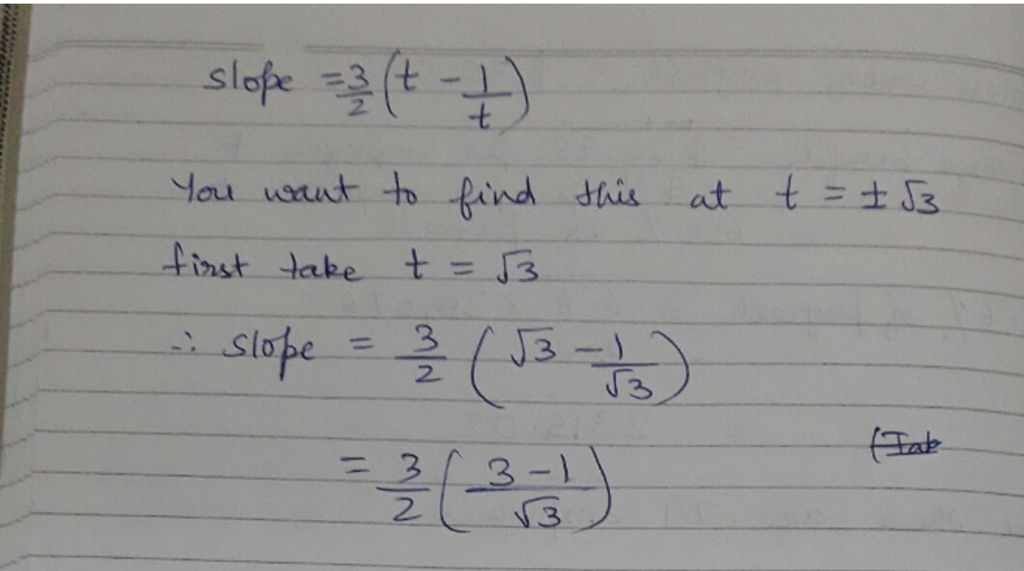 slope = 3/2 (t - 1/t)
You want to find this at t = ± √3
first take t = √3
∴ slope = 3/2 (√3 - 1/√3)
(Tak
= 3/2 (3 - 1/√3)